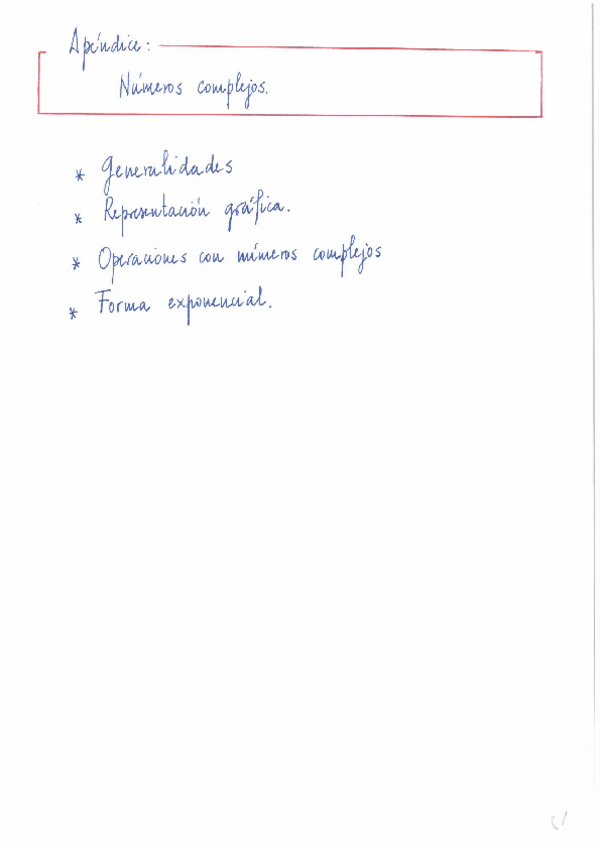 Apéndice:
Números complejos.
* Generalidades
* Representación gráfica.
* Operaciones con números complejos
* Forma exponencial.